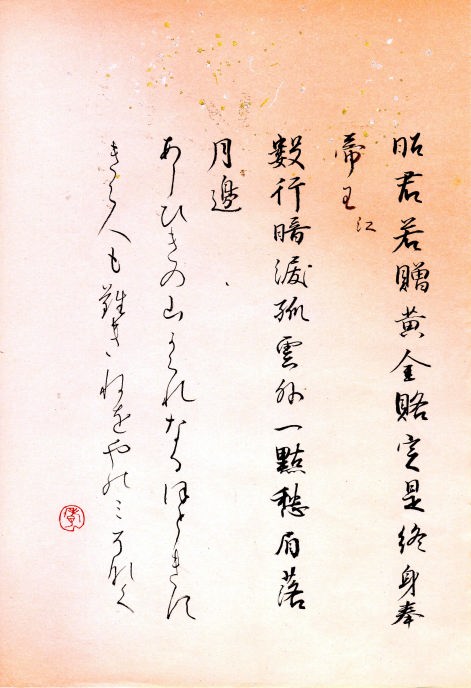 昭君若贈黄金賂定是終身奉
帝王 江
數行暗涙孤雲外一點愁眉落
月邊
あしひきの山かくれなるほとゝきす
きく人も難きねをのミそなく